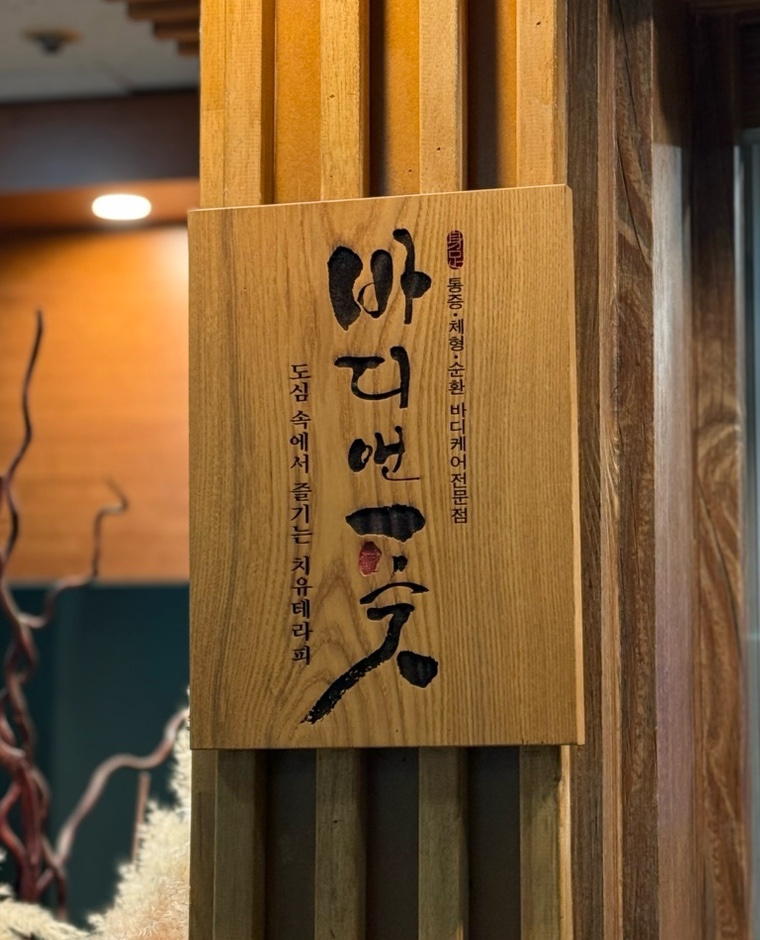 身足
통증·체형·순환 바디케어전문점
바디앤풋
도심 속에서 즐기는 치유테라피